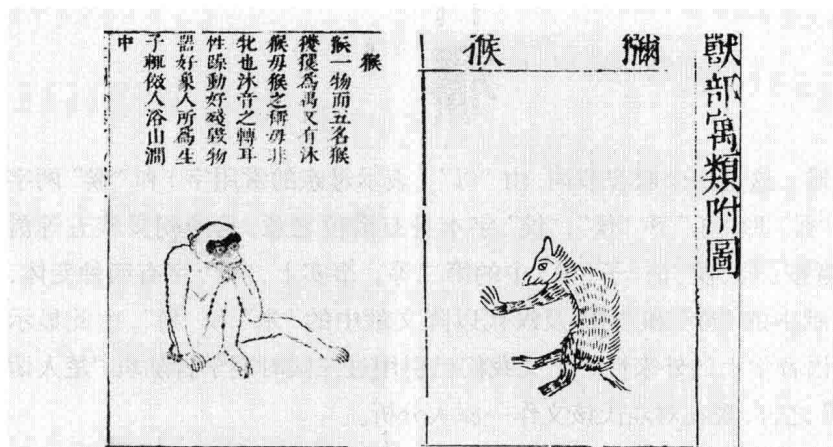 獸部寓類附圖
獼猴
猴
猴一物而五名猴
為禺又有沐
猴母猴之稱母非
牝也沐音之轉耳
性躁動好殘毀物
器好象人所為生
子輒傚人浴山澗
中